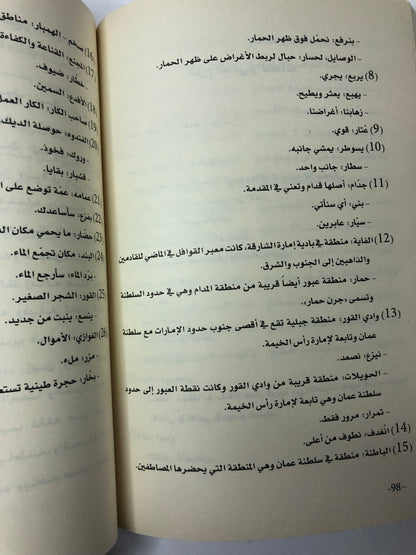 - بنرفع: نحمّل فوق ظهر الحمار.
- الوصايل، لحسار: حبال لربط الأغراض على ظهر الحمار.
(8) يربع: يجري.
- يهبع: يعثر ويطيح.
- زهابنا: أغراضنا.
(9) عْتار: قوي.
(10) يسوطر: يمشي جانبه.
- سطار: جانب واحد.
(11) جدّام: أصلها قدام وتعني في المقدمة.
- بني: أي سنأتي.
- سبّار: عابرين.
(12) الفاية: منطقة في بادية إمارة الشارقة، كانت معبر القوافل في الماضي للقادمين
والذاهبين إلى الجنوب والشرق.
- حمار: منطقة عبور أيضاً قريبة من منطقة المدام وهي في حدود السلطنة
وتسمى، جرن حمار.
(13) وادي القور: منطقة جبلية تقع في أقصى جنوب حدود الإمارات مع سلطنة
عمان وتابعة لإمارة رأس الخيمة.
- نبزع: نصعد.
- الحويلات: منطقة قريبة من وادي القور وكانت نقطة العبور إلى حدود
سلطنة عمان وهي تابعة لإمارة رأس الخيمة.
- تمرار: مرور فقط.
(14) انْغدف: نطوف من أعلى.
(15) الباطنة: منطقة في سلطنة عمان وهي المنطقة التي يحضرها المصاطفين.
-98-
- صخم، الهمبار: مناطق
(16)
(17) المجنع: القناعة والكفاءة
- خطّار: ضيوف.
(18) الأفدع: السمين.
(19) صاحب الكار: الكار العمل
(20) الغندوه: حوصلة الديك
- وروك: فخوذ.
- قشبار: بقايا.
(21) عمامه: عمّة توضع على
- بفزع: سأساعدك.
(22) حضار: ما يحمي مكان
(23) البند: مكان تجمّع الماء.
(24) - بردّ الماء: سأرجع الماء.
(25) القور: الشجر الصغير.
- ينسع: ينبت من جديد.
(26) الغوازي: الأموال.
- مزر: ملء.
- بخّار: حجرة طينية تستع